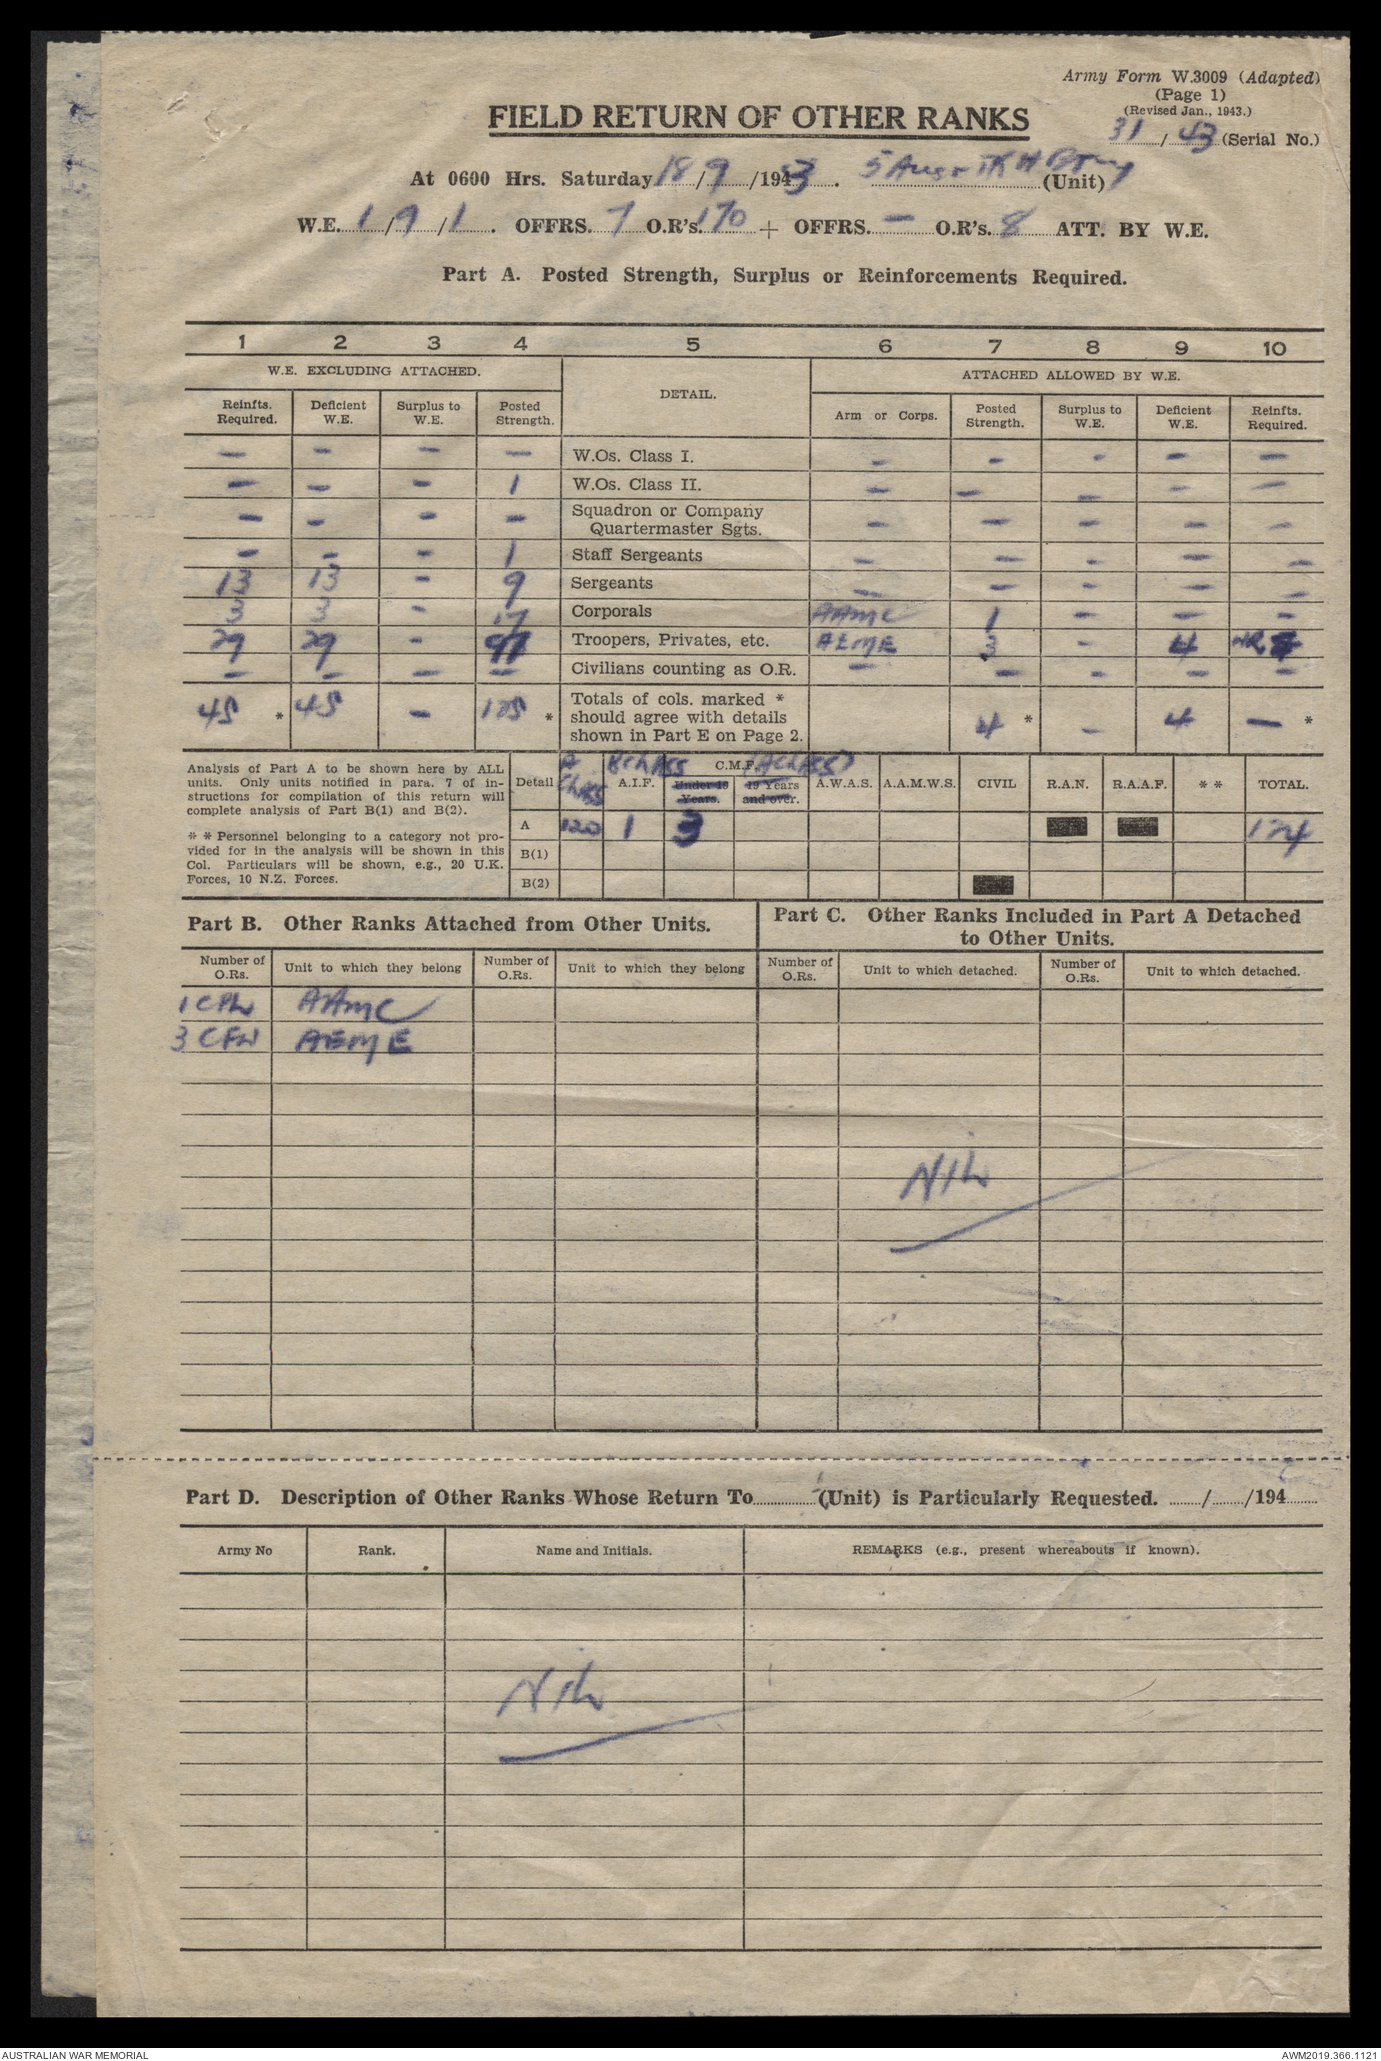 Army Form W.3009 (Adapted)
(Page 1)
(Revised Jan., 1943.)
31 / 43 (Serial No.)
FIELD RETURN OF OTHER RANKS
At 0600 Hrs. Saturday 18 / 9 /1943. 5 Aust TK A Btry (Unit)
W.E. 1 / 9 / 1. OFFRS. 7 O.R's. 170 + OFFRS. — O.R's. 8 ATT. BY W.E.
Part A. Posted Strength, Surplus or Reinforcements Required.
1 2 3 4 5 6 7 8 9 10
W.E. EXCLUDING ATTACHED. DETAIL. ATTACHED ALLOWED BY W.E.
Reinfts. Required. Deficient W.E. Surplus to W.E. Posted Strength. Arm or Corps. Posted Strength. Surplus to W.E. Deficient W.E. Reinfts. Required.
— — — — W.Os. Class I. — — — — —
— — — 1 W.Os. Class II. — — — — —
— — — — Squadron or Company Quartermaster Sgts. — — — — —
— — — 1 Staff Sergeants — — — — —
13 13 — 9 Sergeants — — — — —
3 3 — 17 Corporals AAMC 1 — — —
29 29 — 97 Troopers, Privates, etc. AEME 3 — 4 NR
— — — — Civilians counting as O.R. — — — — —
45 * 45 — 125 * Totals of cols. marked * should agree with details shown in Part E on Page 2. 4 * — 4 — *
Analysis of Part A to be shown here by ALL
units. Only units notified in para. 7 of in-
structions for compilation of this return will
complete analysis of Part B(1) and B(2).
* * Personnel belonging to a category not pro-
vided for in the analysis will be shown in this
Col. Particulars will be shown, e.g., 20 U.K.
Forces, 10 N.Z. Forces.
A Class B Class C.M.F. (A Class)
Detail A.I.F. Under 19 Years. 19 Years and over. A.W.A.S. A.A.M.W.S. CIVIL R.A.N. R.A.A.F. * * TOTAL.
A 120 1 3 124
B(1)
B(2)
Part B. Other Ranks Attached from Other Units.
Part C. Other Ranks Included in Part A Detached
to Other Units.
Number of O.Rs. Unit to which they belong Number of O.Rs. Unit to which they belong Number of O.Rs. Unit to which detached. Number of O.Rs. Unit to which detached.
1 CPL AAMC
3 CFN AEME
NIL
Part D. Description of Other Ranks Whose Return To (Unit) is Particularly Requested. / /194
Army No Rank. Name and Initials. REMARKS (e.g., present whereabouts if known).
NIL
AUSTRALIAN WAR MEMORIAL AWM2019.366.1121